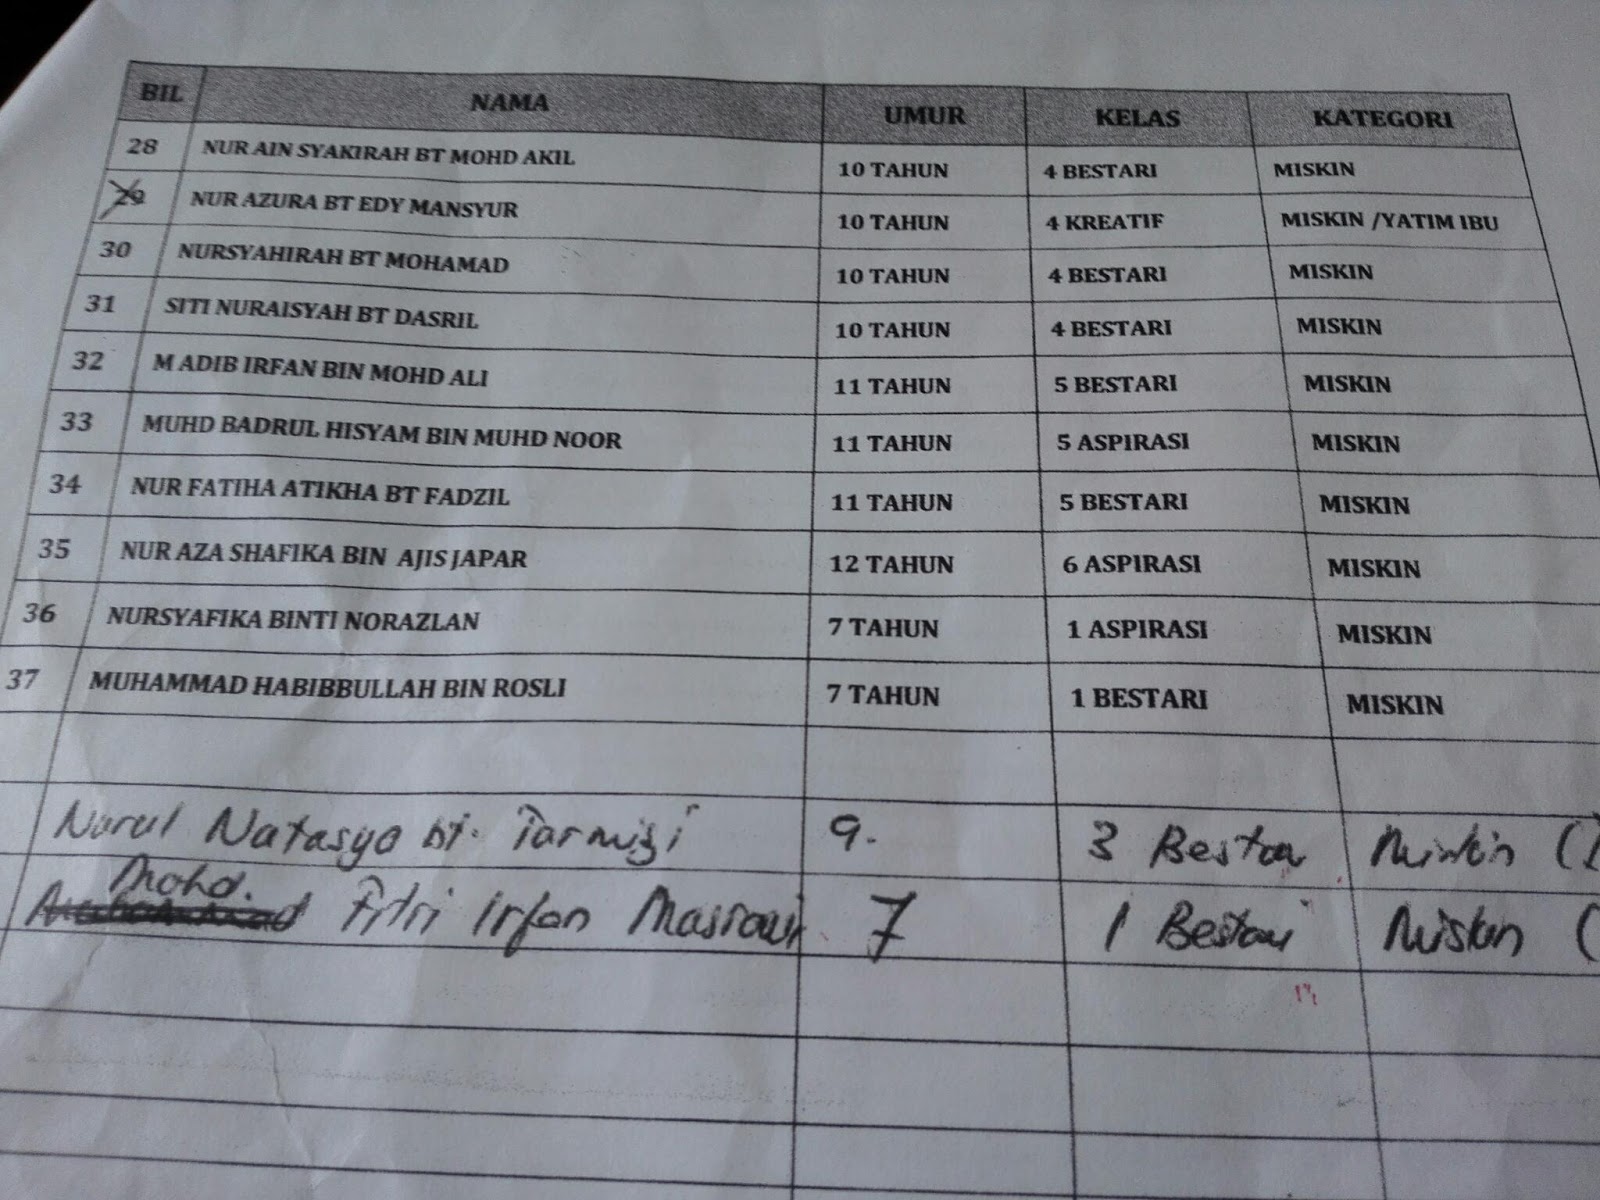 BIL NAMA UMUR KELAS KATEGORI
28 NUR AIN SYAKIRAH BT MOHD AKIL 10 TAHUN 4 BESTARI MISKIN
29 NUR AZURA BT EDY MANSYUR 10 TAHUN 4 KREATIF MISKIN /YATIM IBU
30 NURSYAHIRAH BT MOHAMAD 10 TAHUN 4 BESTARI MISKIN
31 SITI NURAISYAH BT DASRIL 10 TAHUN 4 BESTARI MISKIN
32 M ADIB IRFAN BIN MOHD ALI 11 TAHUN 5 BESTARI MISKIN
33 MUHD BADRUL HISYAM BIN MUHD NOOR 11 TAHUN 5 ASPIRASI MISKIN
34 NUR FATIHA ATIKHA BT FADZIL 11 TAHUN 5 BESTARI MISKIN
35 NUR AZA SHAFIKA BIN AJIS JAPAR 12 TAHUN 6 ASPIRASI MISKIN
36 NURSYAFIKA BINTI NORAZLAN 7 TAHUN 1 ASPIRASI MISKIN
37 MUHAMMAD HABIBBULLAH BIN ROSLI 7 TAHUN 1 BESTARI MISKIN
Nurul Natasya bt. Tarmizi 9. 3 Bestari Miskin (
Mohd. Fitri Irfan 7 1 Bestari Miskin (